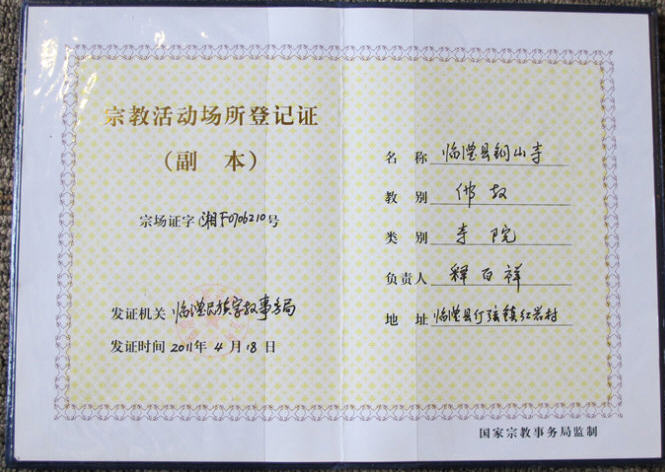 宗教活动场所登记证
（副 本）
宗场证字（湘）F0706210号
发证机关 临澧民族宗教事务局
发证时间 2011年4月18日
名 称 临澧县铜山寺
教 别 佛教
类 别 寺院
负责人 释百祥
地 址 临澧县佘市镇红岩村
国家宗教事务局监制